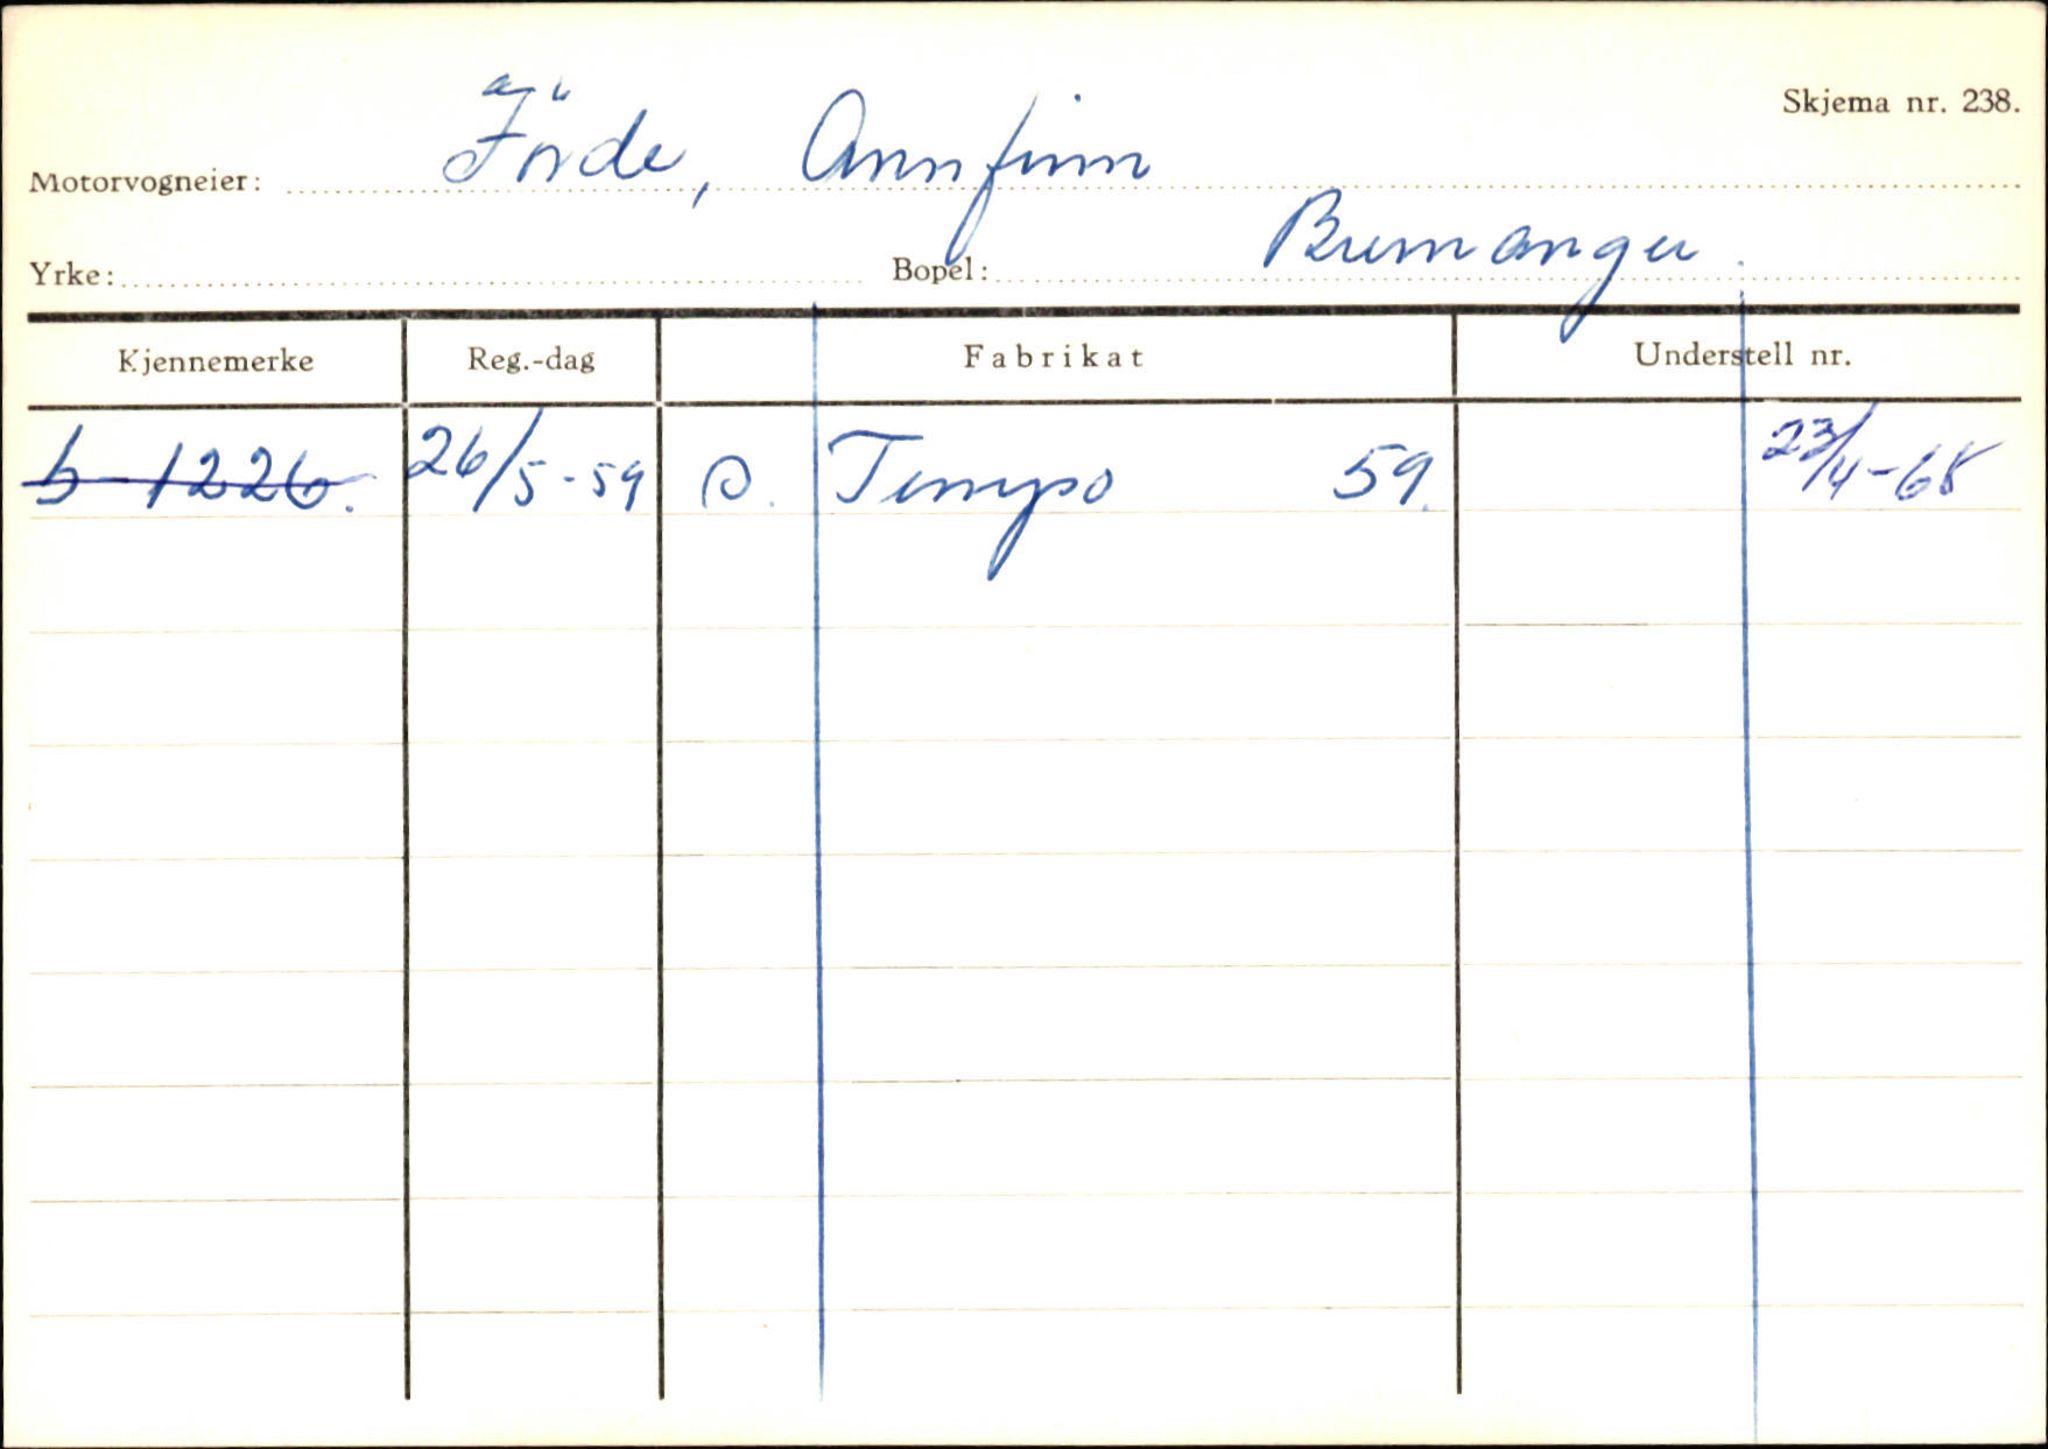 Skjema nr. 238.
Motorvogneier: Förde, Annfinn
Yrke: Bopel: Bremanger.
Kjennemerke Reg.-dag Fabrikat Understell nr.
1226. 26/5-59 Tempo 59. 23/4-68